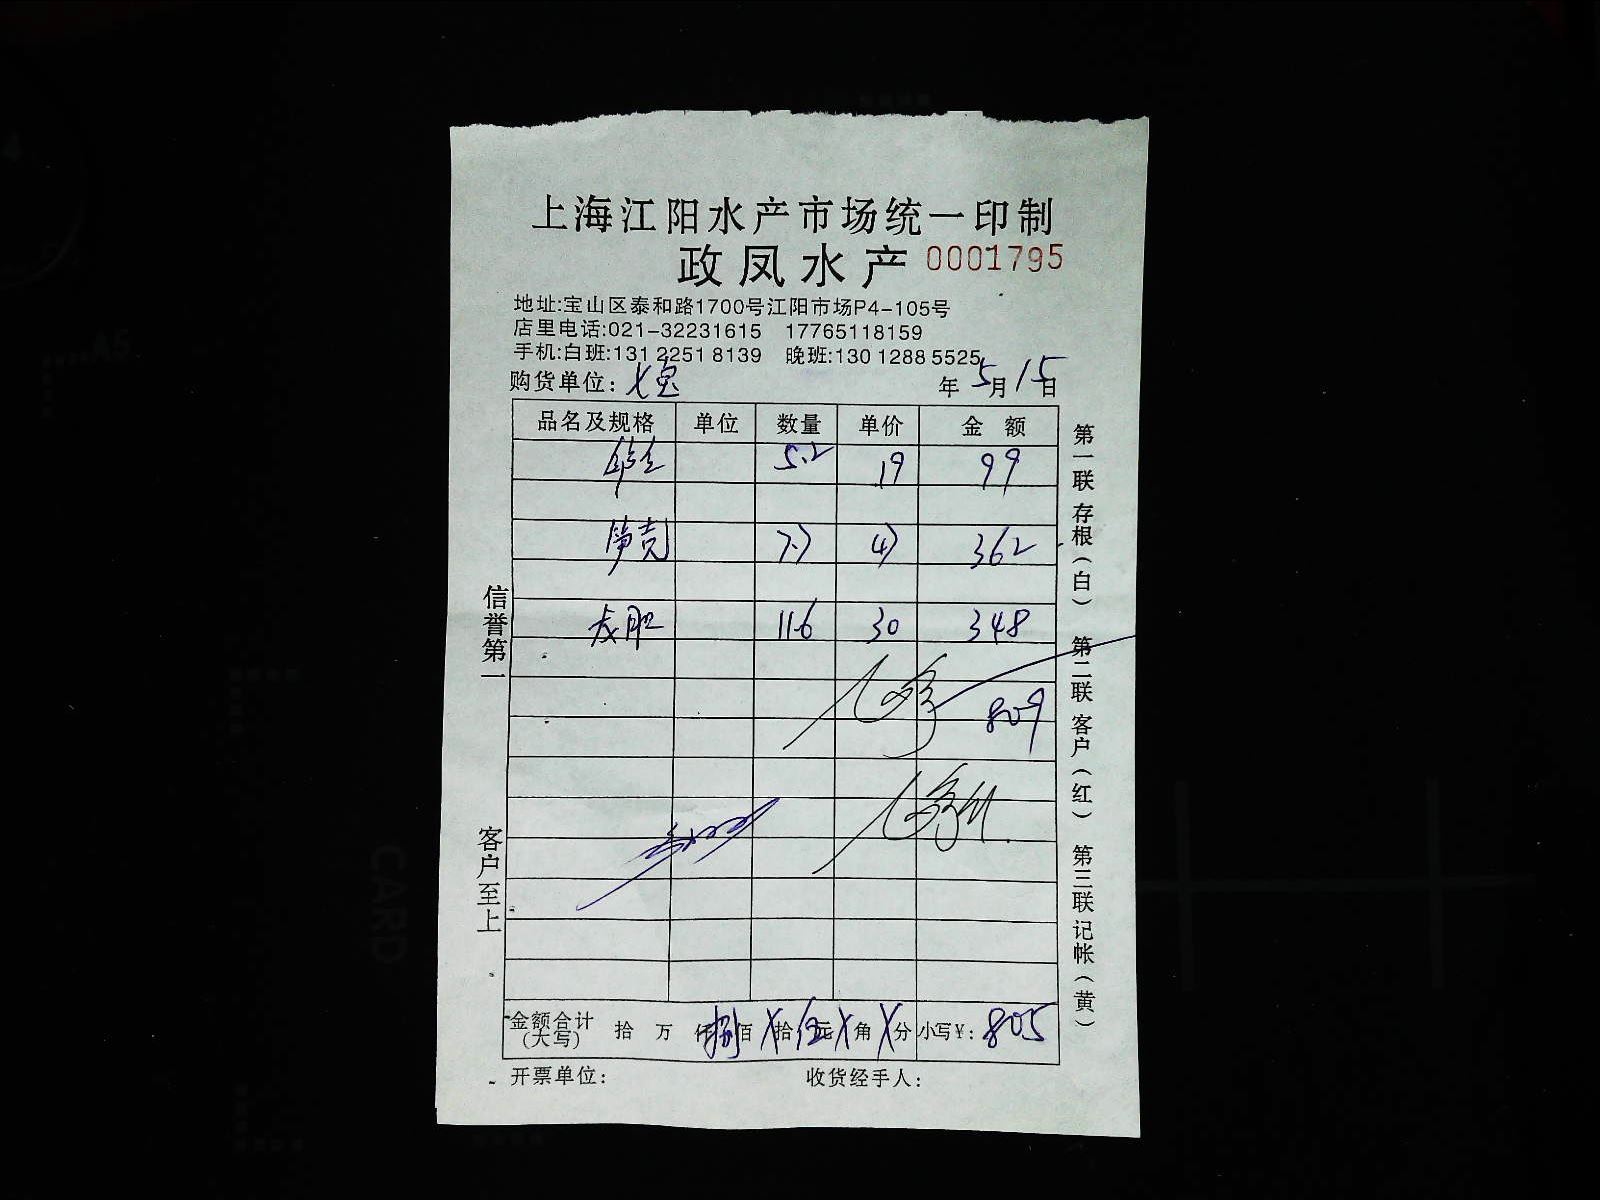 上海江阳水产市场统一印制
政凤水产 0001795
地址:宝山区泰和路1700号江阳市场P4-105号
店里电话:021-32231615 17765118159
手机:白班:131 2251 8139 晚班:130 1288 5525
购货单位: 年 5月 15日
品名及规格 单位 数量 单价 金 额
5.2 19 99
笋壳 7.7 47 362
11.6 30 348
809
金额合计(大写) 拾 万 仟 捌 佰 X 拾 伍 元 X 角 X 分 小写¥: 805
开票单位: 收货经手人:
信誉第一
客户至上
第一联 存根(白) 第二联 客户(红) 第三联 记帐(黄)